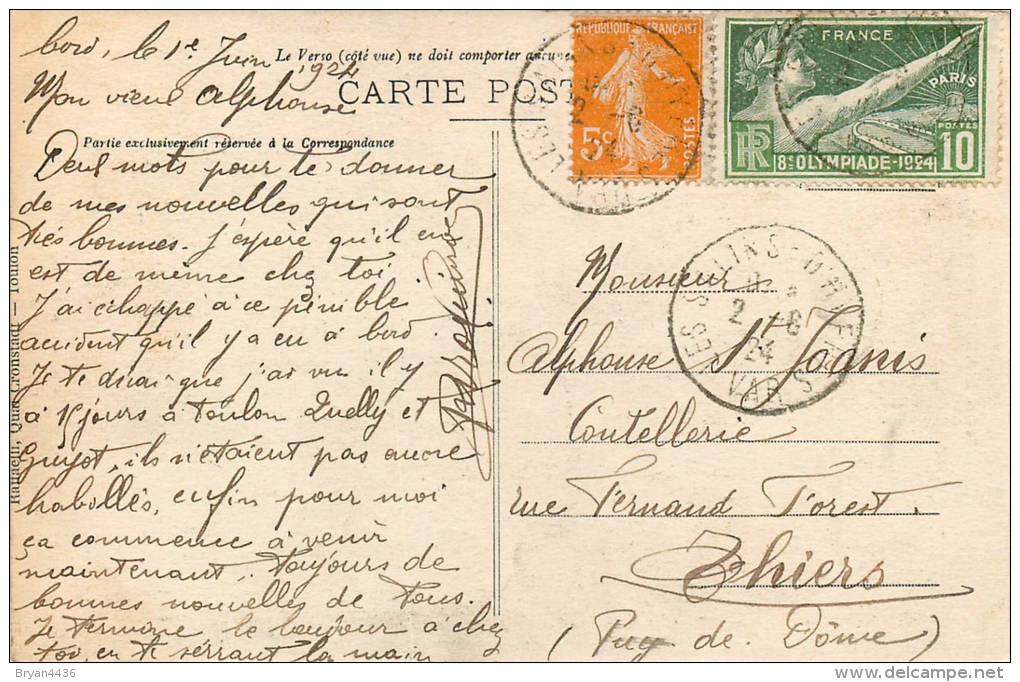 bord, le 1er Juin 1924
Le Verso (côté vue) ne doit comporter aucune
Mon vieux Alphonse
CARTE POST
Partie exclusivement réservée à la Correspondance
Deux mots pour te donner
de mes nouvelles qui sont
très bonnes. J'espère qu'il en
est de même chez toi.
J'ai échappé à ce pénible
accident qu'il y a eu à bord.
Je te dirai que j'ai vu il y
à 15 jours à Toulon Quelly et
Guyot, ils n'étaient pas encore
habillés, enfin pour moi
ça commence à venir
maintenant. Toujours de
bonnes nouvelles de tous.
Je termine le bonjour à chez
toi, en te serrant la main
Raffaelli, Quai Cronstadt - Toulon
REPUBLIQUE FRANÇAISE
5c
POSTES
FRANCE
PARIS
POSTES
RF
8e OLYMPIADE-1924
10
LES SALINS-D'HYERES
2 -6
24
VAR
Monsieur
Alphonse St Joanis
Coutellerie
rue Fernand Forest.
Thiers
(Puy de Dôme)
Bryan4436
www.delcampe.net